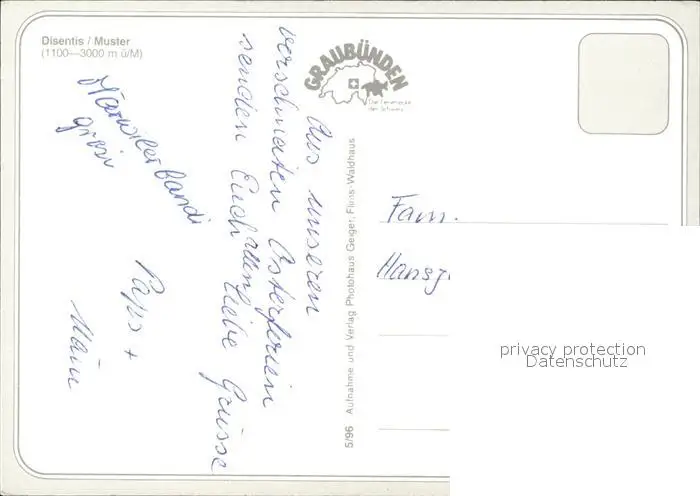 Disentis / Muster
(1100—3000 m ü/M)
GRAUBÜNDEN
Die Ferienecke
der Schweiz
Aus unseren
verschneiten Osterferien
senden Euch allen liebe Grüsse
Paps +
Mami
5/96 Aufnahme und Verlag Photohaus Geiger, Flims-Waldhaus
Fam.
Hansj
privacy protection
Datenschutz